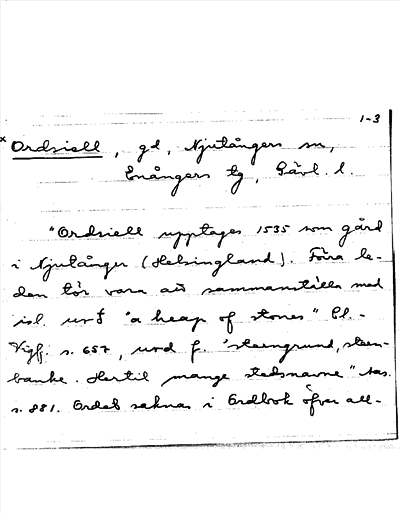 1-3
× Ordsiell, gd, Njutångers sn,
Enångers tg, Gävl. l.
"Ordsiell upptages 1535 som gård
i Njutånger (Helsingland). Förra le-
den tör vara att sammanställa med
isl. urð "a heap of stones" Cl.-
Vigf. s. 657, urd f. "steengrund, steen-
banke. Hertil mange stedsnavne" Aas.
s. 881. Ordet saknas i Ordbok öfver all-